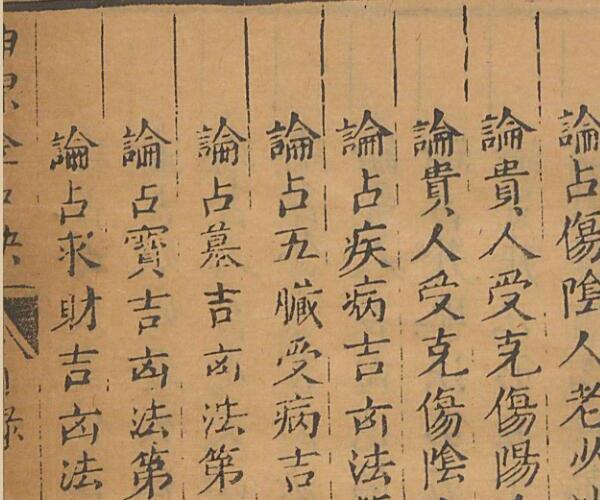 論占傷陰人老少
論貴人受克傷陽
論貴人受克傷陰
論占疾病吉凶法
論占五臟受病吉
論占墓吉凶法第
論占寳吉凶法第
論占求財吉凶法
金口訣
目録